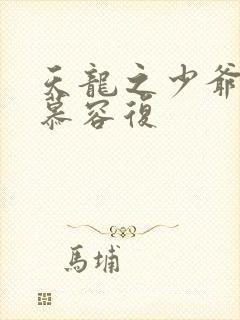 天龍之少爺
慕容復
馬埔